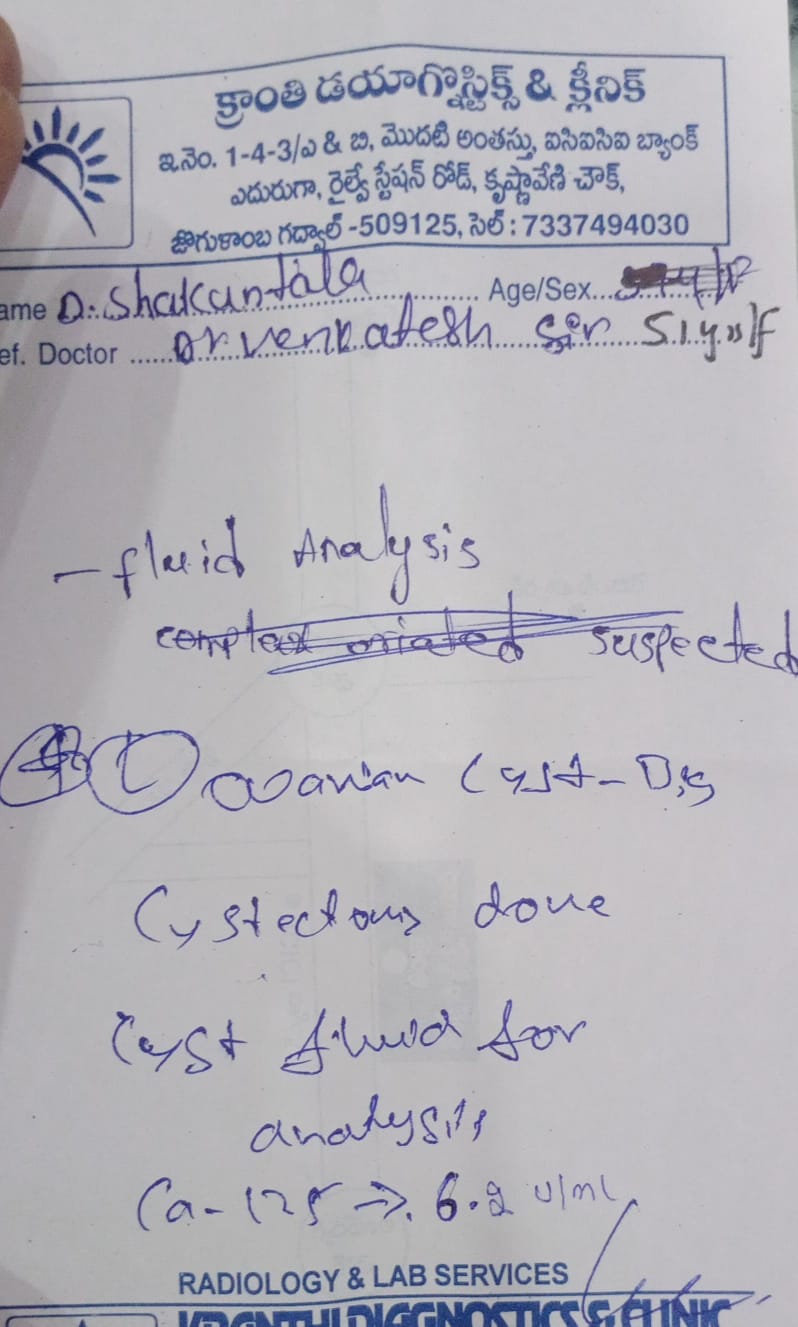 క్రాంతి డయాగ్నొస్టిక్స్ & క్లీనిక్
ఇ.నెం. 1-4-3/ఎ & బి, మొదటి అంతస్తు, ఐసిఐసిఐ బ్యాంక్
ఎదురుగా, రైల్వే స్టేషన్ రోడ్, కృష్ణావేణి చౌక్,
జొగుళాంబ గద్వాల్ -509125, సెల్ : 7337494030
ame D. Shakuntala Age/Sex
ef. Doctor Dr venkatesh Sir 51y"/F
- fluid Analysis
suspected
ovarian Cyst -
Cystectomy done
Cyst fluid for
analysis
Ca-125 → 6.2 U/ml
RADIOLOGY & LAB SERVICES
KRANTHI DIAGNOSTICS & CLINIC